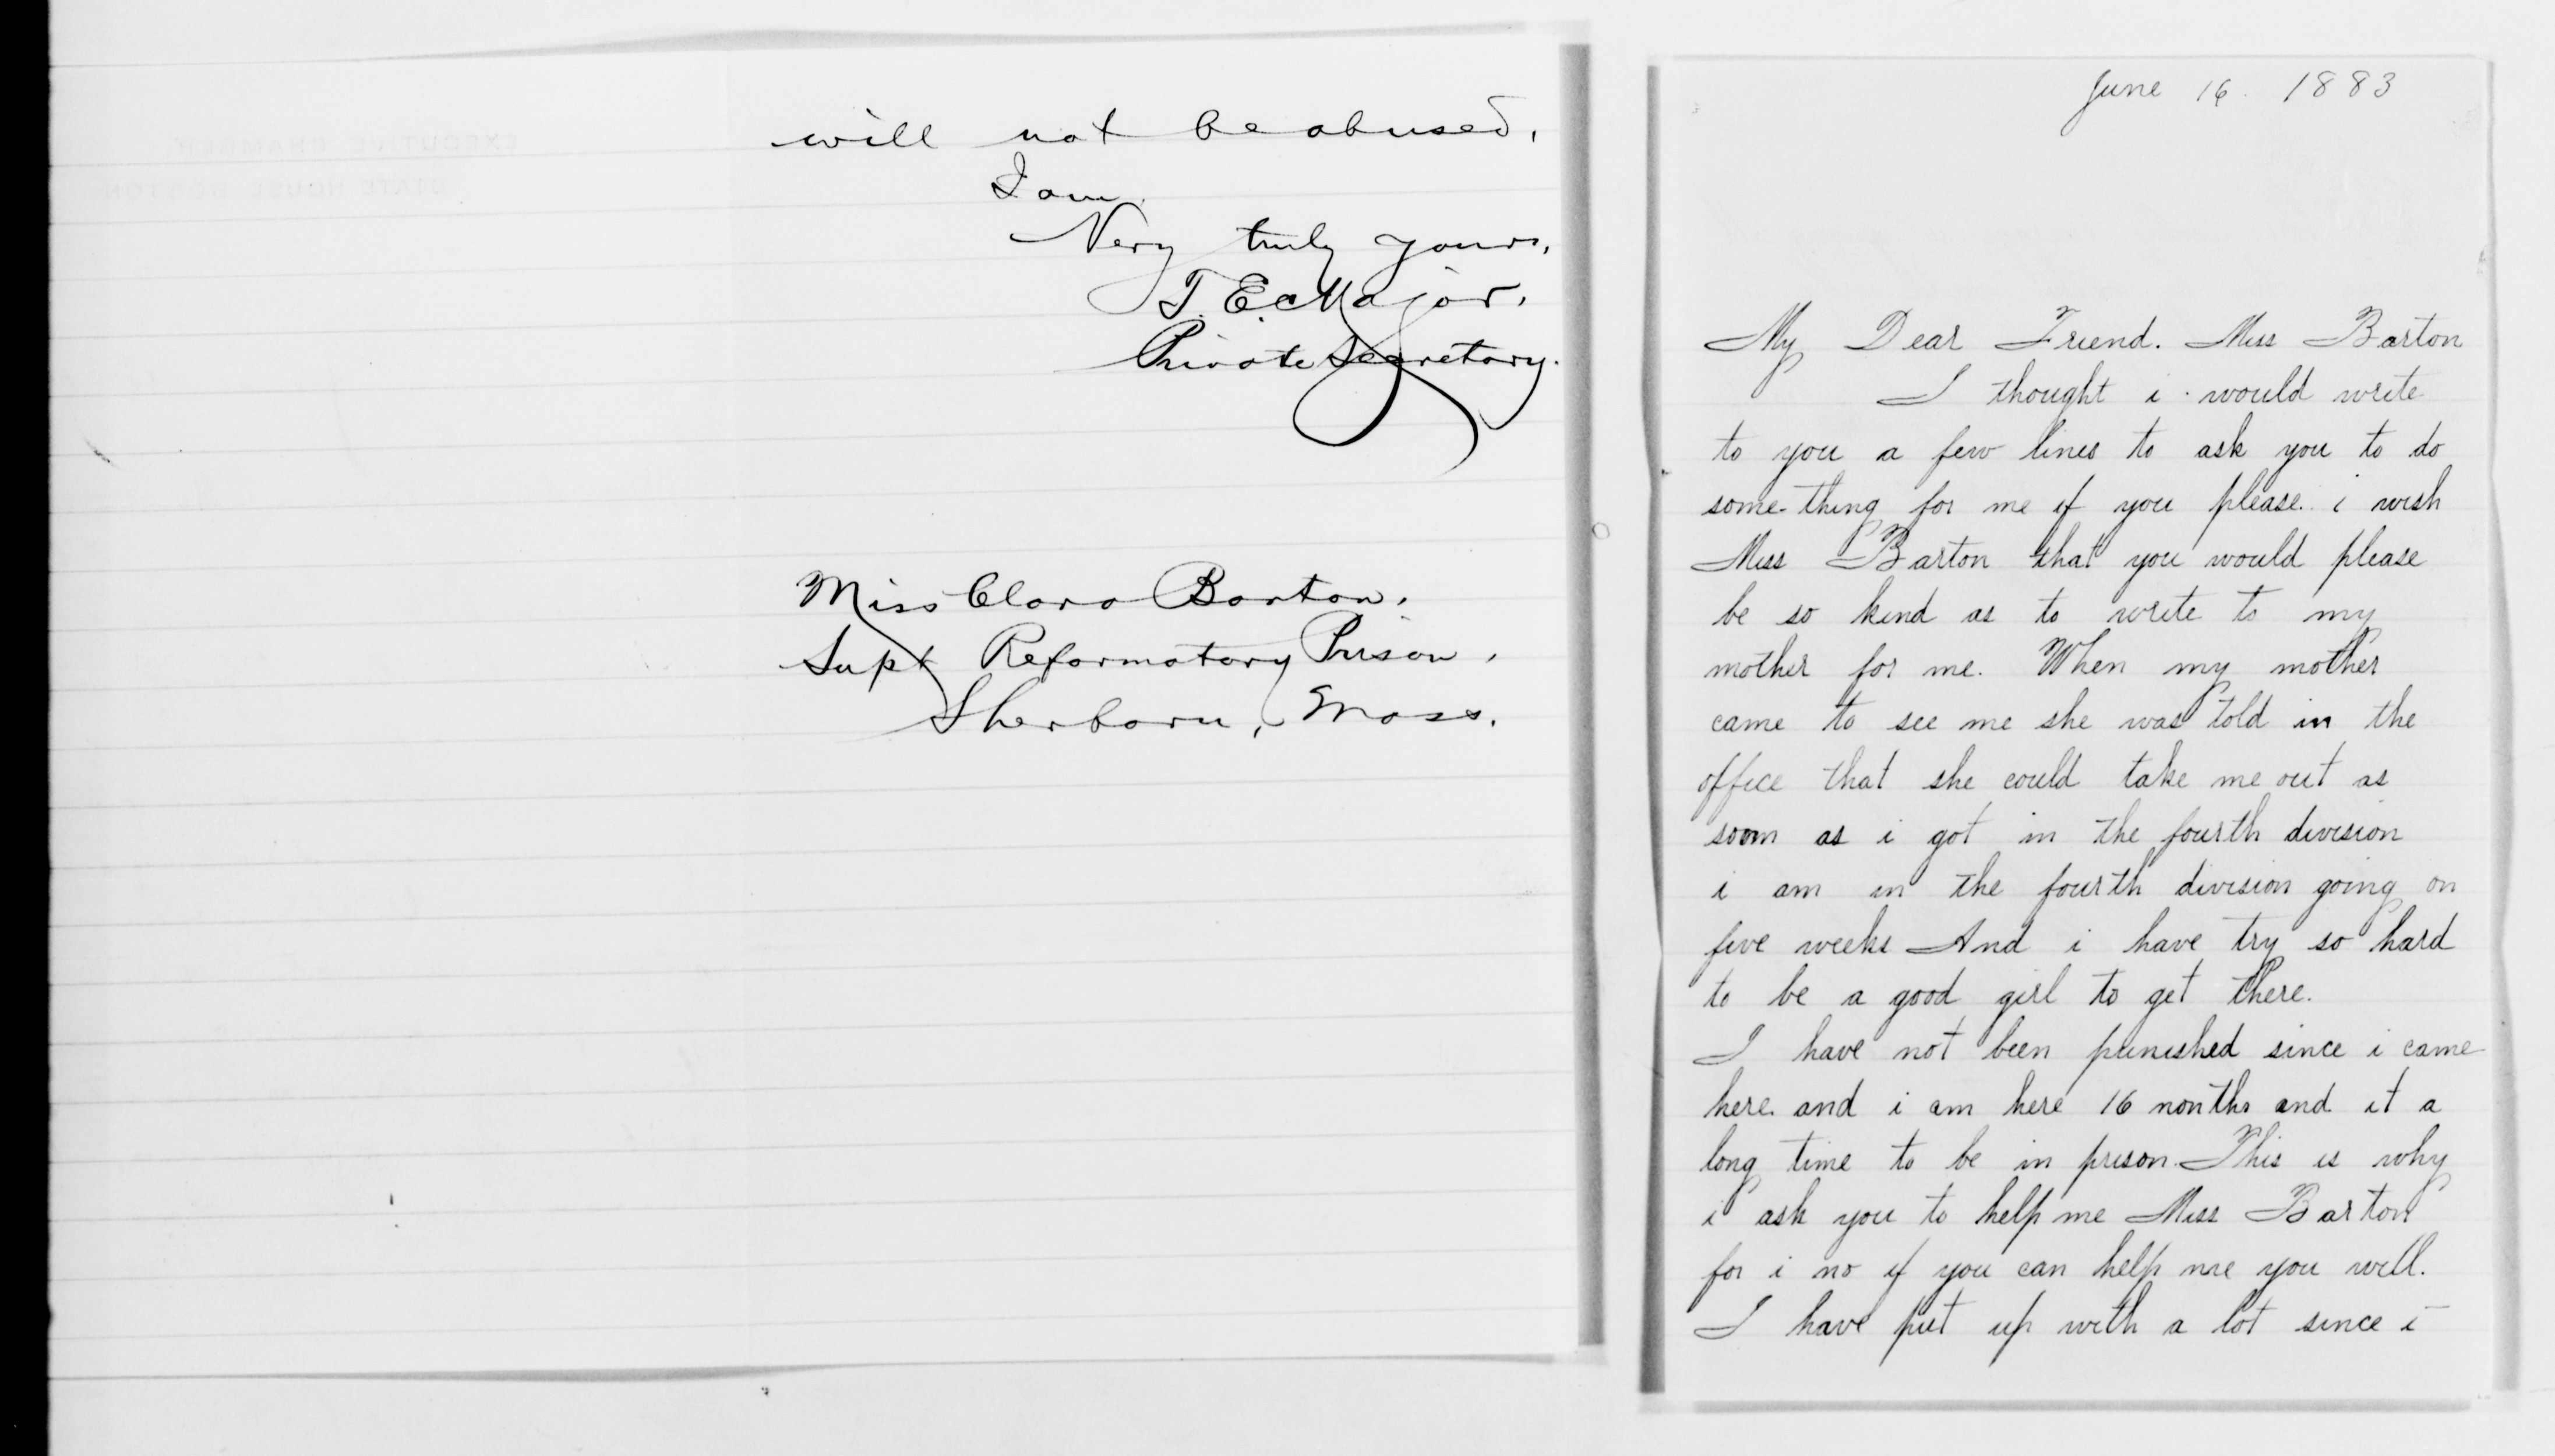 will not be abused,
I am,
Very truly yours,
T. E. Major,
Private Secretary.
Miss Clara Barton,
Supt Reformatory Prison,
Sherborn, Mass.
EXECUTIVE CHAMBER
STATE HOUSE BOSTON
June 16. 1883
My Dear Friend. Miss Barton
I thought i would write
to you a few lines to ask you to do
some-thing for me if you please. i wish
Miss Barton that you would please
be so kind as to write to my
mother for me. When my mother
came to see me she was told in the
office that she could take me out as
soom as i got in the fourth division
i am in the fourth division going on
five weeks And i have try so hard
to be a good girl to get there.
I have not been punished since i came
here. and i am here 16 nonths and it a
long time to be in prison. This is why
i ask you to help me Miss Barton
for i no if you can help me you will.
I have put up with a lot since i